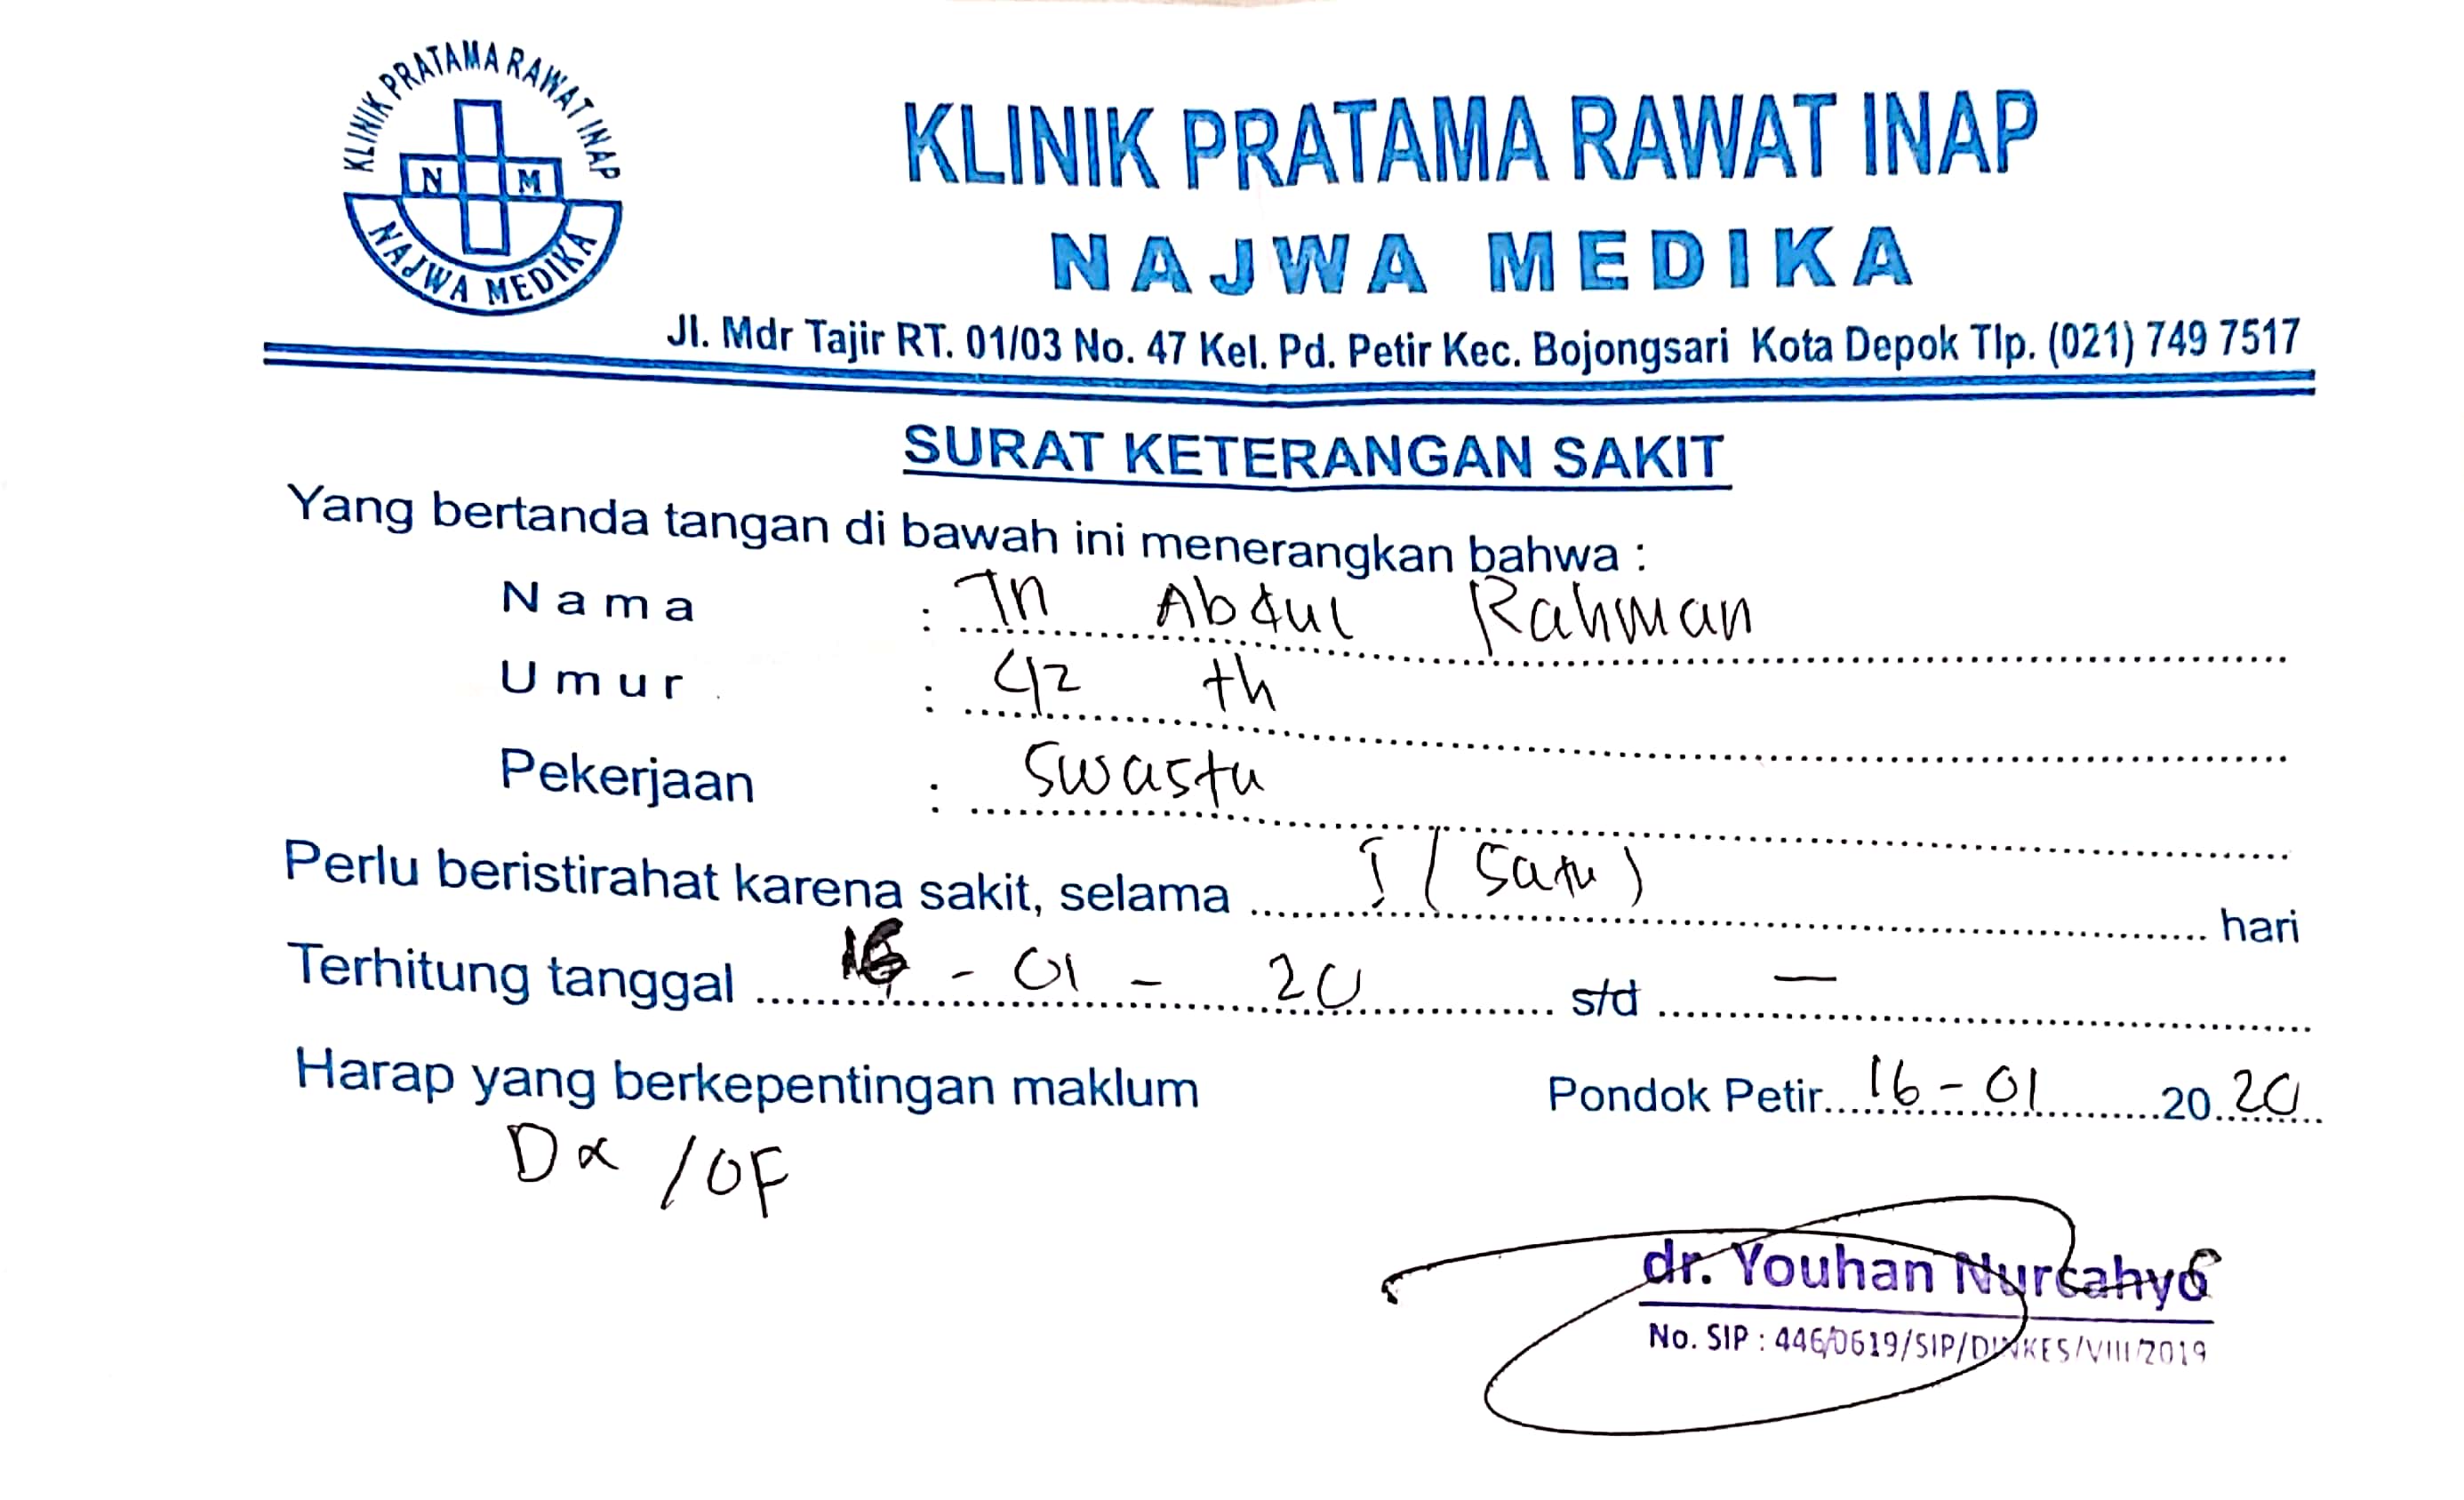 KLINIK PRATAMA RAWAT INAP
NAJWA MEDIKA
N M
KLINIK PRATAMA RAWAT INAP
NAJWA MEDIKA
Jl. Mdr Tajir RT. 01/03 No. 47 Kel. Pd. Petir Kec. Bojongsari Kota Depok Tlp. (021) 749 7517
SURAT KETERANGAN SAKIT
Yang bertanda tangan di bawah ini menerangkan bahwa :
Nama : Tn Abdul Rahman
Umur : 42 th
Pekerjaan : Swasta
Perlu beristirahat karena sakit, selama 1 (satu) hari
Terhitung tanggal 16 - 01 - 20 s/d —
Harap yang berkepentingan maklum
Pondok Petir 16 - 01 20 20
Dx / OF
dr. Youhan Nurcahyo
No. SIP : 446/0619/SIP/DINKES/VIII/2019